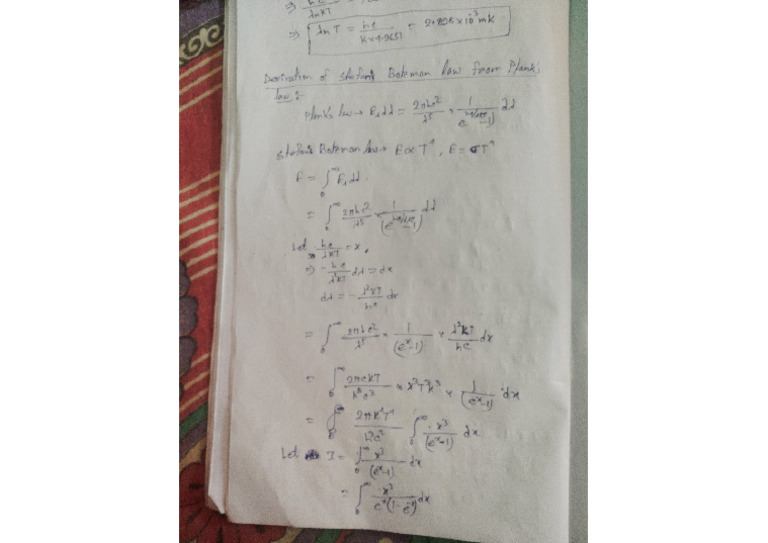 ⇒ hc/λmKT
⇒ λmT = hc/(K×4.9651) = 2.898×10⁻³ mK
Derivation of Stefan's Boteman law from Plank's
law :
Plank's law → Eλdλ = 2πhc²/λ⁵ × 1/(e^(hc/λKT)-1) dλ
Stefan's Boteman law → E∝T⁴, E = σT⁴
E = ∫₀^∞ Eλdλ.
= ∫₀^∞ 2πhc²/λ⁵ × 1/(e^(hc/λKT)-1) dλ
Let hc/λKT = x,
⇒ -hc/λ²KT dλ = dx
dλ = -λ²KT/hc dx
= ∫₀^∞ 2πhc²/λ⁵ × 1/(eˣ-1) × λ²KT/hc dx
= ∫₀^∞ 2πcKT/h³c³ × x³T³K³ × 1/(eˣ-1) dx
= 2πK⁴T⁴/h³c² ∫₀^∞ x³/(eˣ-1) dx
Let I = ∫₀^∞ x³/(eˣ-1) dx
= ∫₀^∞ x³/eˣ(1-e⁻ˣ) dx